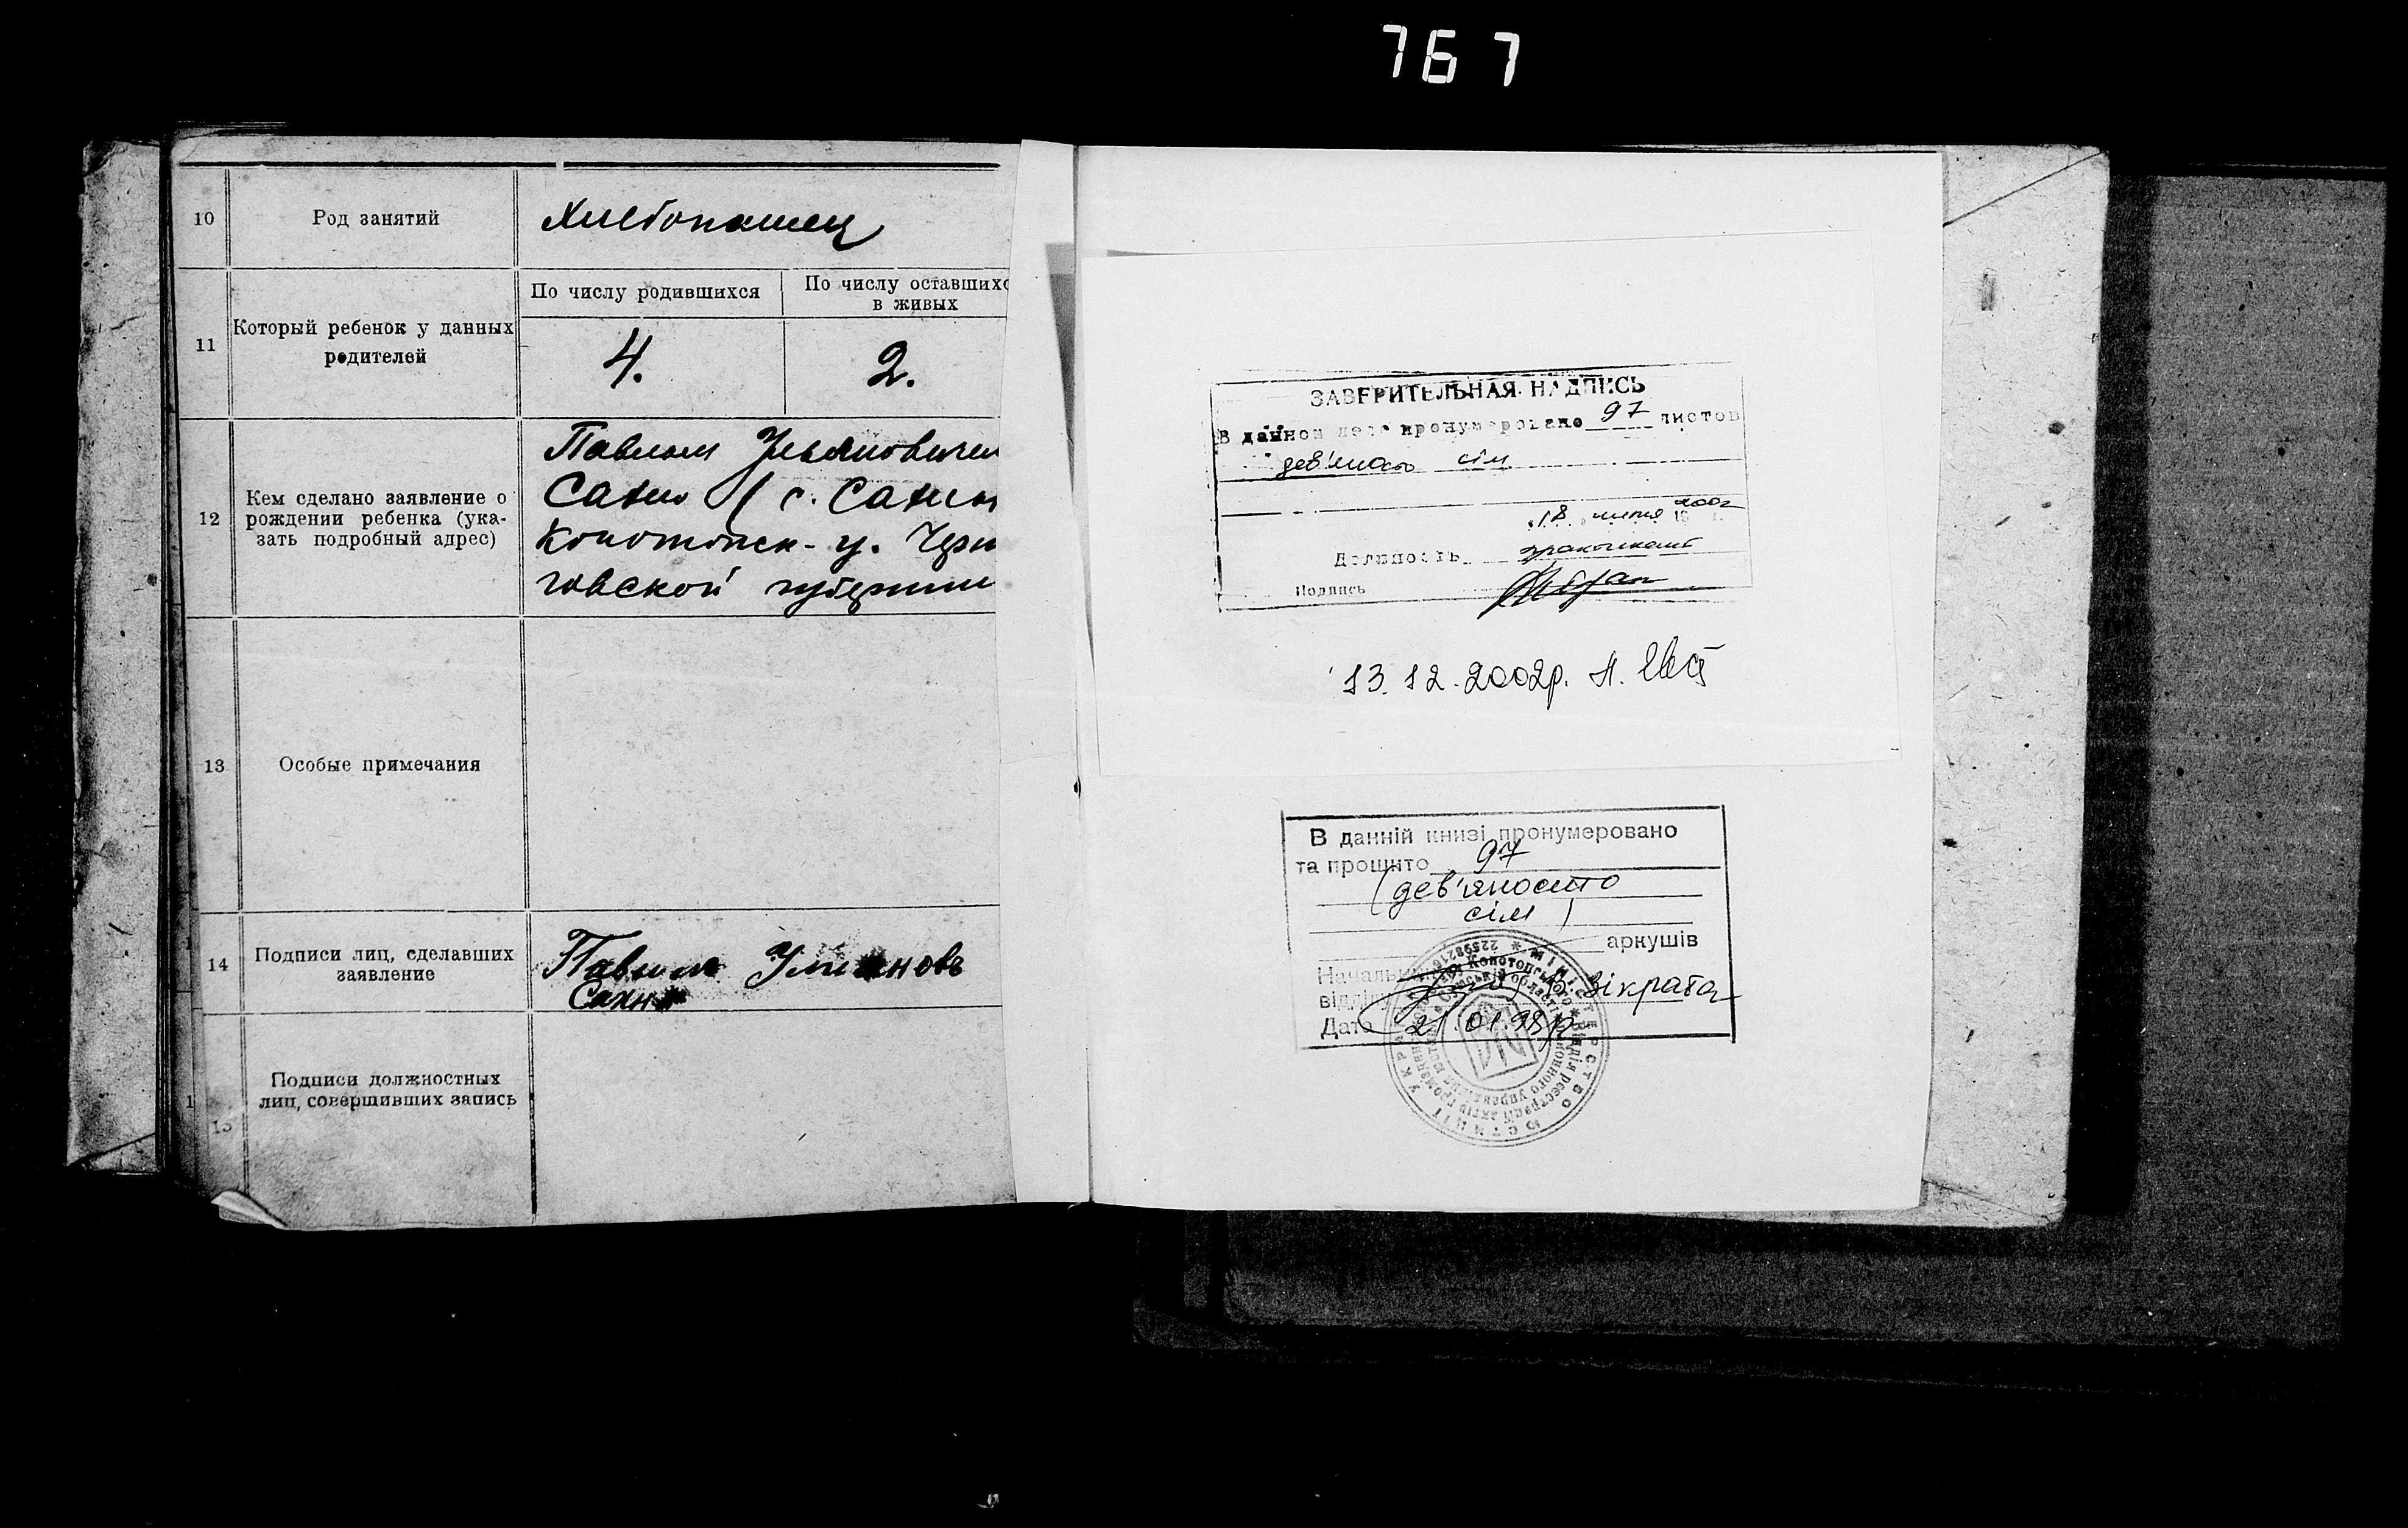 767
10
Род занятий
Хлебопашец
11
Который ребенок у данных
родителей
По числу родившихся
По числу оставшихс
в живых
4.
2.
12
Кем сделано заявление о
рождении ребенка (ука-
зать подробный адрес)
Павлом Ульяновичем
Сахно (с. Сахны
Конотопск- у. Черни
говской губернии
13
Особые примечания
14
Подписи лиц, сделавших
заявление
Павил Улиановъ
Сахно
15
Подписи должностных
лиц, совершивших запись
ЗАВЕРИТЕЛЬНАЯ НАДПИСЬ
В данном деле пронумеровано 97 листов
дев'яносто сім
"18" липня 2002
Должность практикант
Подпись
13.12.2002р.
В данній книзі пронумеровано
та прошито 97
(дев'яносто
сім)
аркушів
Начальник
відділу В. Зікрата
Дата 21.01.98р.